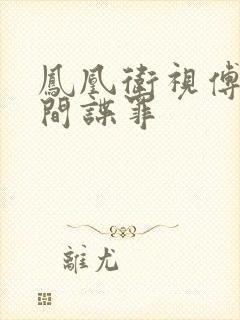 鳳凰衛視傅
間諜罪
離尤